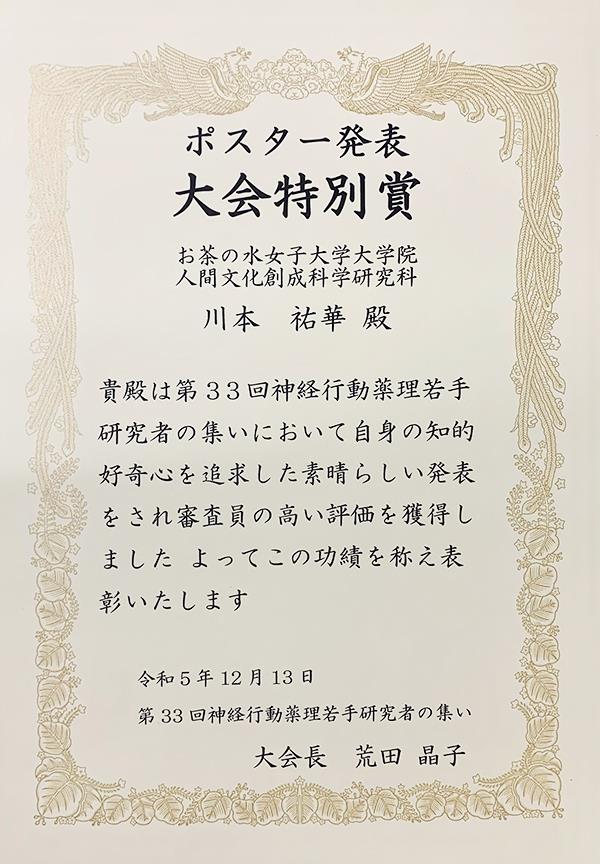 ポスター発表
大会特別賞
お茶の水女子大学大学院
人間文化創成科学研究科
川本 祐華 殿
貴殿は第33回神経行動薬理若手
研究者の集いにおいて自身の知的
好奇心を追求した素晴らしい発表
をされ審査員の高い評価を獲得し
ました よってこの功績を称え表
彰いたします
令和5年12月13日
第33回神経行動薬理若手研究者の集い
大会長 荒田 晶子